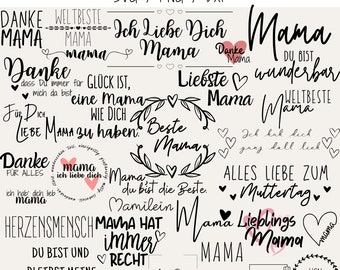 SVG / PNG / DXF
DANKE
MAMA
WELTBESTE
MAMA
mama
Ich Liebe Dich
Mama
Danke
Mama
Mama
DU BIST
wunderbar
Danke
dass Du immer für
mich da bist
GLÜCK IST,
eine Mama
WIE DICH
zu haben
Liebste
Mama
WELTBESTE
Mama
Für Dich
LIEBE MAMA
Beste
Mama
Ich hab dich
ganz doll lieb
Danke
FÜR ALLES
ich hab' dich lieb
mama
mama
ich liebe dich
Mama
du bist die Beste
ALLES LIEBE ZUM
Muttertag
Mamilein
HERZENSMENSCH
MAMA HAT
immer
RECHT
Mama
Lieblings
Mama
mama
DU BIST UND
BLEIBST MEINE
MAMA